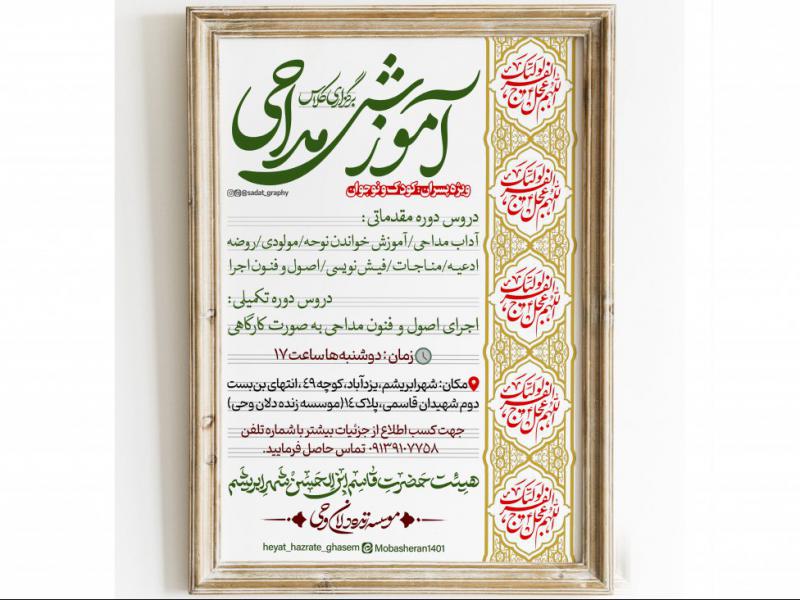 برگزاری کلاس
آموزشی مداحی
ویژه پسران: کودک و نوجوان
@sadat_graphy
دروس دوره مقدماتی:
آداب مداحی/آموزش خواندن نوحه/مولودی/روضه
ادعیه/مناجات/فیش نویسی/اصول و فنون اجرا
دروس دوره تکمیلی:
اجرای اصول و فنون مداحی به صورت کارگاهی
زمان: دوشنبه‌ها ساعت ۱۷
مکان: شهر ابریشم، یزدآباد، کوچه ۴۹، انتهای بن‌بست
دوم شهیدان قاسمی، پلاک ۱۴ (موسسه زنده دلان وحی)
جهت کسب اطلاع از جزئیات بیشتر با شماره تلفن
۰۹۱۳۹۱۰۷۷۵۸ تماس حاصل فرمایید.
هیئت حضرت قاسم ابن الحسن شهر ابریشم
موسسه زنده دلان وحی
heyat_hazrate_ghasem Mobasheran1401
اللهم عجل لولیک الفرج
اللهم عجل لولیک الفرج
اللهم عجل لولیک الفرج
اللهم عجل لولیک الفرج
اللهم عجل لولیک الفرج